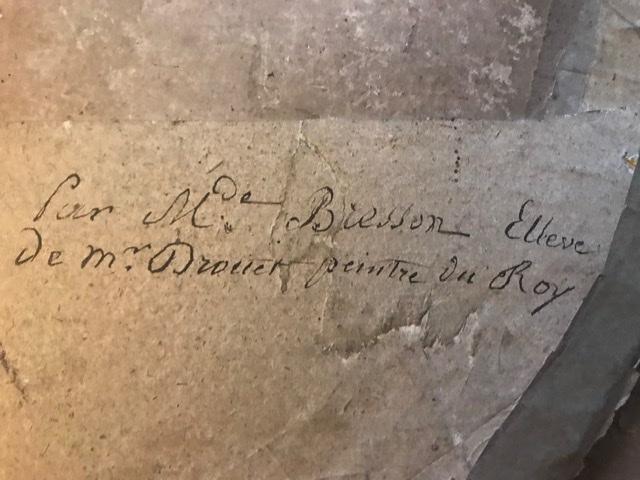 Par M.de Biesson Elleve
De mr. Drouet peintre du Roy